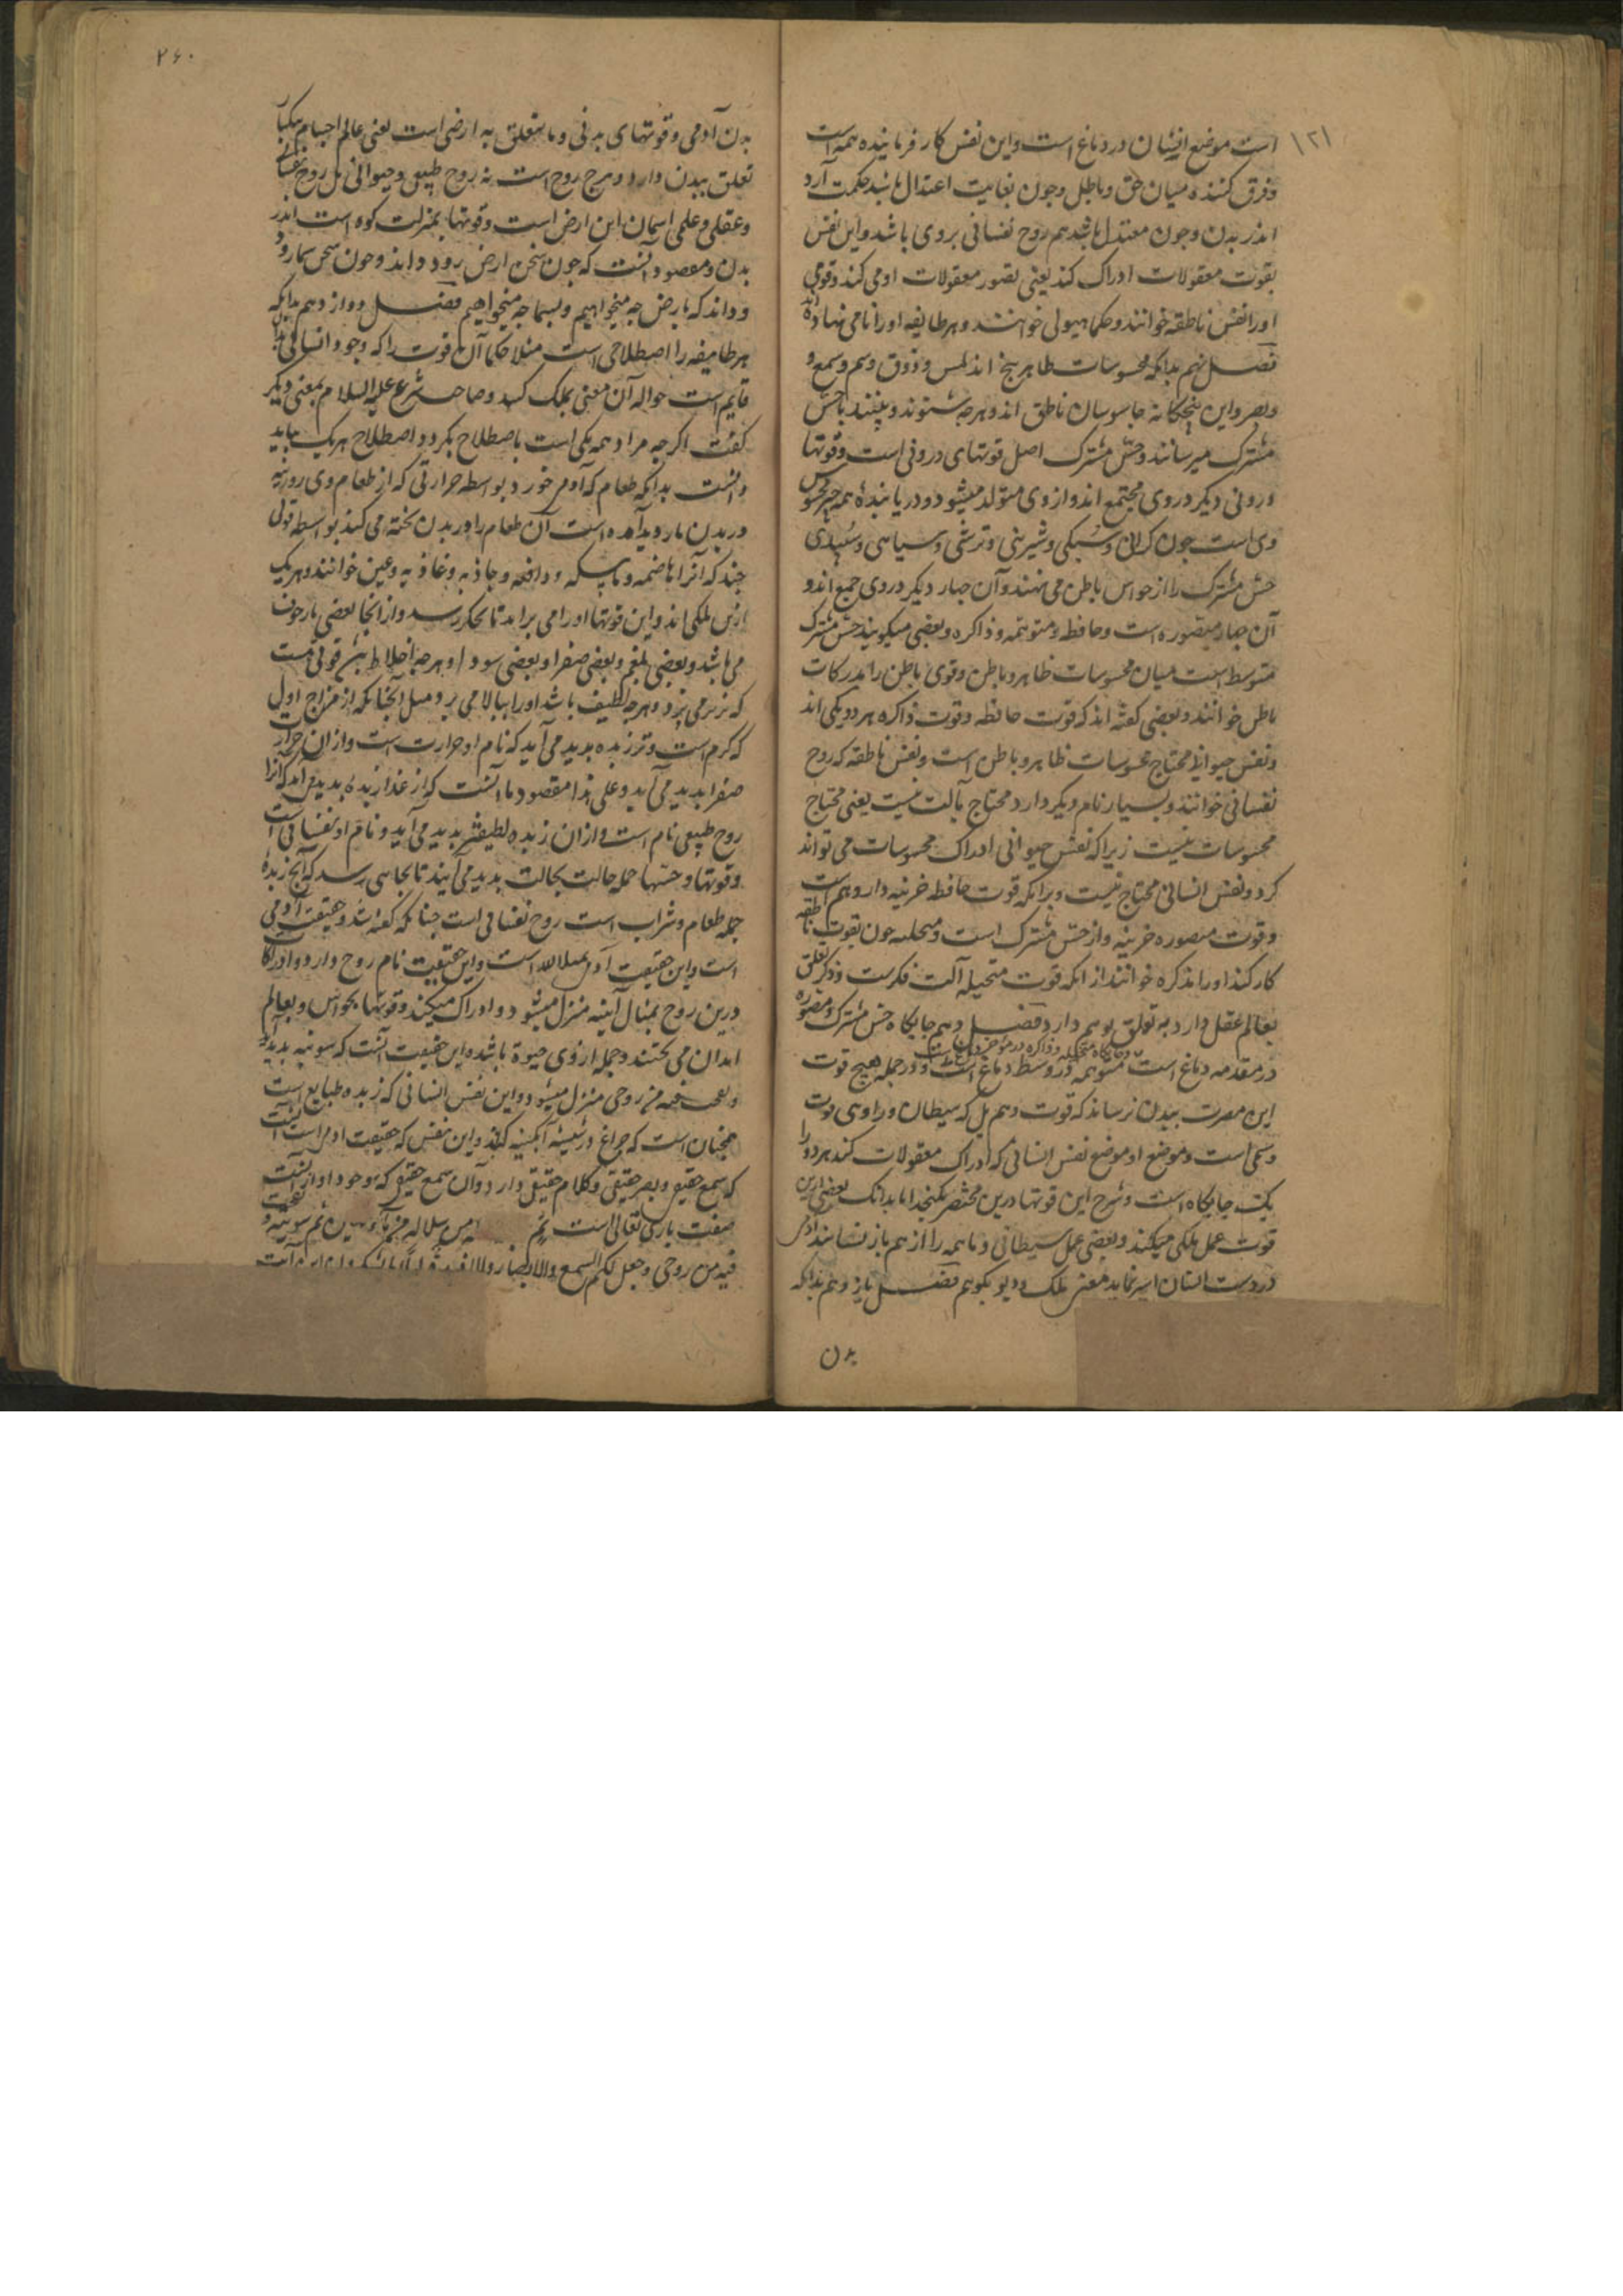 ۱۲۱
است موضع ایشان در دماغ است و این نفس کار فرماینده همه است
و فرق کننده میان حق و باطل و چون بغایت اعتدال باشد حکمت آرد
اندر بدن و چون معتدل باشد هم روح نفسانی بروی باشد و این نفس
بقوت معقولات ادراک کند یعنی تصور معقولات او می کند و قومی
او را نفس ناطقه خوانند و حکما هیولی خوانند و هر طایفه او را نامی نهاده اند
فصل نهم بدانکه محسوسات ظاهر پنج اند لمس و ذوق و شم و سمع و
و بصر و این پنجگانه جاسوسان ناطق اند و هرچه شنوند و بینند با حس
مشترک میرسانند و حس مشترک اصل قوتهای درونی است و قوتها
درونی دیگر در وی مجتمع اند و از وی متولد میشود و دریابنده همه چیز محسوس
وی است چون گرانی و سبکی و شیرینی و ترشی و سیاهی و سپیدی
حس مشترک را از حواس باطن می نهند و آن چهار دیگر در وی جمع اند و
آن چهار مصوره است و حافظه و متوهمه و ذاکره و بعضی میگویند حس مشترک
متوسط است میان محسوسات ظاهر و باطن و قوی باطن را مدرکات
باطن خوانند و بعضی گفته اند که قوت حافظه و قوت ذاکره هر دو یکی اند
و نفس حیوانی محتاج محسوسات ظاهر و باطن است و نفس ناطقه که روح
نفسانی خوانند و بسیار نام دیگر دارد محتاج بآلت نیست یعنی محتاج
محسوسات نیست زیرا که نفس حیوانی ادراک محسوسات می تواند
کرد و نفس انسانی محتاج نیست و بدانکه قوت حافظه خزینه دار وهم است
و قوت مصوره خزینه دار حس مشترک است و متخیله چون بقوت ناطقه
کار کند او را مذکره خوانند از آنکه قوت متخیله آلت فکرست و ذکر تعلق
بعالم عقل دارد به تعلق بوهم دارد فصل دهم جایگاه حس مشترک و مصوره
در مقدمه دماغ است و جایگاه متخیله و ذاکره در مؤخر دماغ است متوهمه در وسط دماغ است و در جمله هیچ قوت
این مضرت ببدن نرساند که قوت وهم بل که شیطان و را وهمی قوت
وهمی است و موضع او موضع نفس انسانی که ادراک معقولات کند هر دو را
یک جایگاه است و شرح این قوتها درین مختصر نگنجد اما بدانک بعضی ازین
قوت عمل ملکی میکنند و بعضی عمل شیطانی و تا همه را از هم باز نشناسند آدمی
در دست ایشان اسیر نماید معنی ملک و دیو بگویم فصل یازدهم بدانکه
بدن
۲۶۰
بدن آدمی و قوتهای بدنی و ما یتعلق به ارضی است یعنی عالم اجسام
تعلق ببدن دارد و هرچه روح است نه روح طبیعی و حیوانی بل روح نفسانی
و عقلی و علمی آسمان این ارض است و قوتها بمنزلت کوه است اندر
بدن و مقصود آنست که چون سخن ارض رود داند و چون سخن سما رود
و داند که بارض چه میخواهیم و بسما چه میخواهیم فصل دوازدهم بدانکه
هر طایفه را اصطلاحی است مثلا حکما آن قوت را که وجود انسانی بدان
قایم است حواله آن معنی بملک کنند و صاحب شرع علیه السلام بمعنی دیگر
گفت اگرچه مراد همه یکی است باصطلاح بگردد و اصطلاح هر یک بباید
دانست بدانکه طعام که آدمی خورد بواسطه حرارتی که از طعام وی روزینه
در بدن مار و پدید آمده است آن طعام را در بدن پخته می کند بواسطه قوی
چند که آنرا هاضمه و ماسکه و دافعه و جاذبه و غاذیه و غیر خوانند و هر یک
ازین ملکی اند و این قوتها او را می براند تا بجگر رسد و از آنجا بعضی باز خون
می باشد و بعضی بلغم و بعضی صفرا و بعضی سودا و هرچه اخلاط بین قوتی هست
که بزیر می برد و هرچه لطیف باشد او را ببالا می برد مثل آنچنانکه از مزاج اول
که گرم است و تر زبده پدید می آید که نام او حرارت است و از آن حرارت
صفرا پدید می آید و علی هذا مقصود ما آنست که از غذا زبده پدید می آید که آنرا
روح طبیعی نام است و از آن زبده لطیفتر پدید می آید و نام او نفسانی است
و قوتها و حسها جمله حالت بحالت پدید می آیند تا بجایی رسد که آنچ زبده
جمله طعام و شراب است روح نفسانی است چنانکه گفته شد و حقیقت آدمی
است و این حقیقت است و این حقیقت نام روح دارد و ادراکا
درین روح بمثال آینه منزل میشود و ادراک میکند و قوتها بحواس و بعالم
ابدان می بخشند و جمله از وی حیوة باشد و این حقیقت آنست که سویته پدید آید
و نفخت فیه من روحی منزل میشود و این نفس انسانی که زبده طبایع است
همچنان است که چراغ در شیشه آبگینه کنند و این نفس که حقیقت آدم است آنست
که سمع حقیقی و بصر حقیقی و کلام حقیقی دارد و آن سمع حقیقی که موجود او از
صفت باری تعالی است ثم من سلالة من ماء مهین ثم سویته و نفخت
فیه من روحی و جعل لکم السمع والابصار والافئدة قلیلا ما تشکرون این آیت